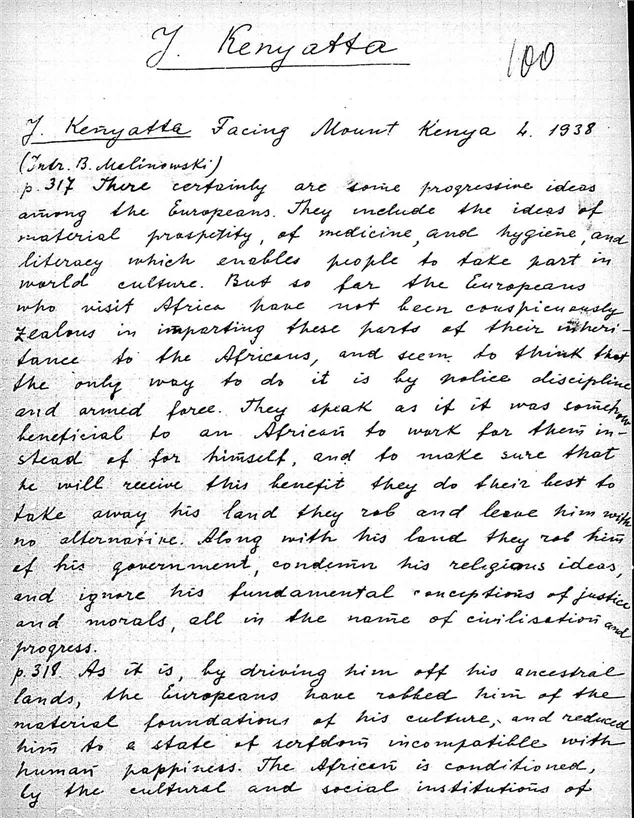 J. Kenyatta
100
J. Kenyatta Facing Mount Kenya L. 1938
(Intr. B. Malinowski)
p. 317 There certainly are some progressive ideas
among the Europeans. They include the ideas of
material prospetity, of medicine, and hygiene, and
literacy which enables people to take part in
world culture. But so far the Europeans
who visit Africa have not been conspicuously
zealous in imparting these parts of their inheri-
tance to the Africans, and seem to think that
the only way to do it is by police discipline
and armed force. They speak as if it was somehow
beneficial to an African to work for them in-
stead of for himself, and to make sure that
he will receive this benefit they do their best to
take away his land they rob and leave him with
no alternative. Along with his land they rob him
of his government, condemn his religious ideas,
and ignore his fundamental conceptions of justice
and morals, all in the name of civilisation and
progress.
p. 318. As it is, by driving him off his ancestral
lands, the Europeans have robbed him of the
material foundations of his culture, and reduced
him to a state of serfdom incompatible with
human pappiness. The African is conditioned,
by the cultural and social institutions of